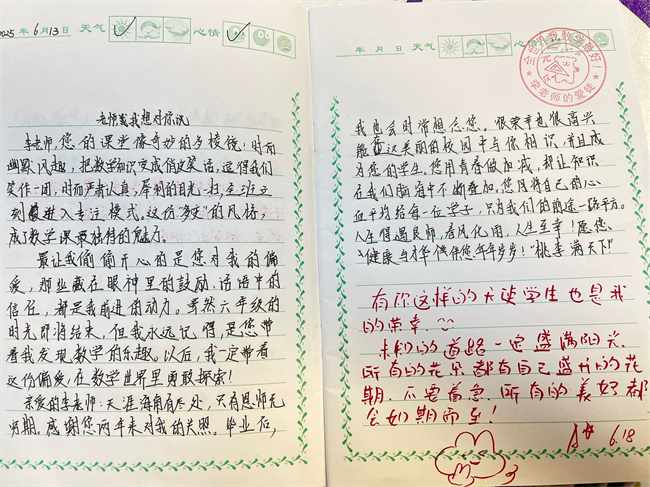 2025 年 6 月 13 日 天气 心情
老师我想对你说
李老师,您的课堂像奇妙的多棱镜:时而
幽默风趣,把数学知识变成俏皮笑话,逗得我们
笑作一团,时而严肃认真,犀利的目光一扫,全班立
刻进入专注模式。这份“多变”的风格,
成了数学课最独特的魅力。
最让我偷偷开心的是您对我的偏
爱,那些藏在眼神里的鼓励、话语中的
信任,都是我前进的动力。虽然六年级的
时光即将结束,但我永远记得,是您带
着我发现数学的乐趣。以后,我一定带着
这份偏爱,在数学世界里勇敢探索!
亲爱的李老师:天涯海角有尽处,只有恩师无
穷期。感谢您两年来对我的关照。毕业后,
年 月 日 天气 心
全世界我数学最好!
李老师的爱徒
我也会时常想念您。很荣幸也很高兴
能在这美丽的校园中与你相识,并且成
为您的学生。您用青春做加减,却让知识
在我们脑海中不断叠加。您用将自己的心
血平均给每一位学子,只为我们的前途一路平方。
人生得遇良师,春风化雨,人生至幸!愿您,
“健康与才华伴您年年岁岁!”桃李满天下”
有你这样的天使学生也是我
的荣幸。
未知的道路一定盛满阳光,
所有的花朵都有自己盛开的花
期,不要着急,所有的美好都
会如期而至!
6.18